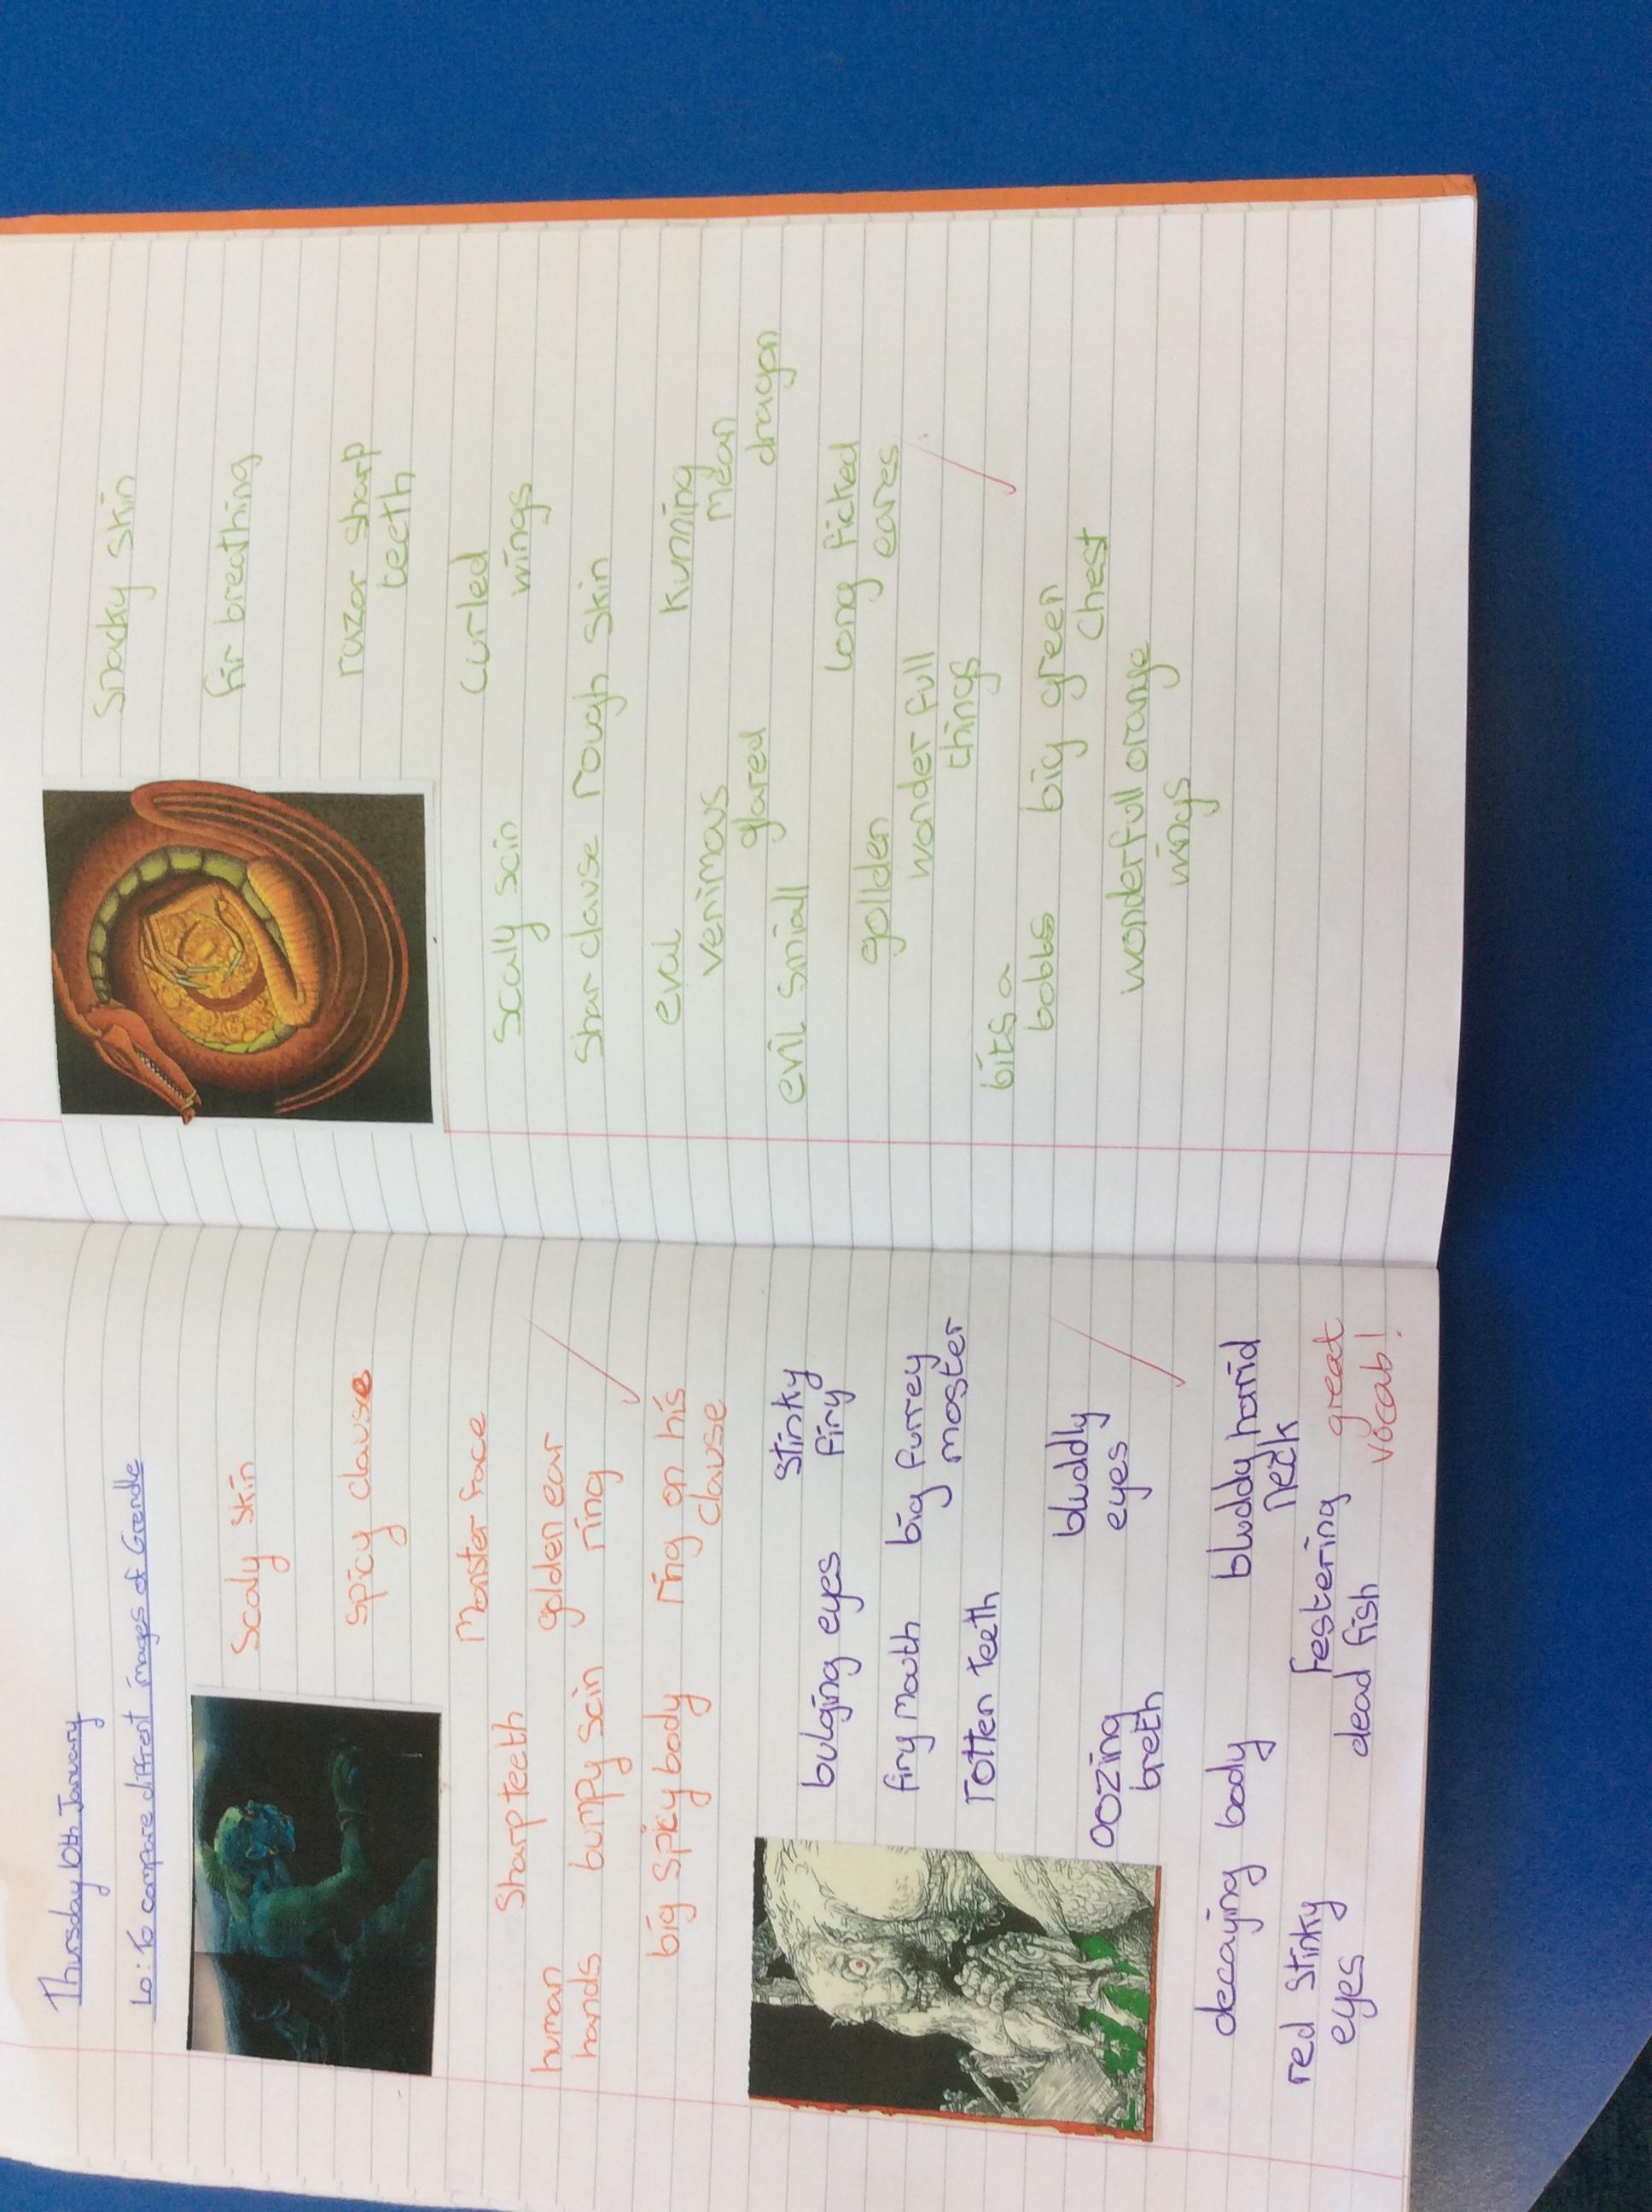 Thursday 6th January
Lo: To compare diffrent images of Grendle
Scaly skin
Spicy clause
Monster face
Sharp teeth
human
hands
golden ear
ring
bumpy scin
big spicy body
ring on his
clause
Stinky
firy
bulging eyes
firy mouth
big furrey
moster
rotten teeth
bluddly
eyes
oozing
breth
decaying body
bluddy horrid
neck
red stinky
eyes
festering
dead fish
great
vocab!
Snacky skin
fir breathing
razor sharp
teeth
curled
wings
scaly scin
Shar clause rough skin
eval
venimous
kunning
mean
dragon
evil smiall
glared
long ficked
eares
gollden
wonder full
things
bits a
bobbs
big green
chest
wonderfull orange
wings